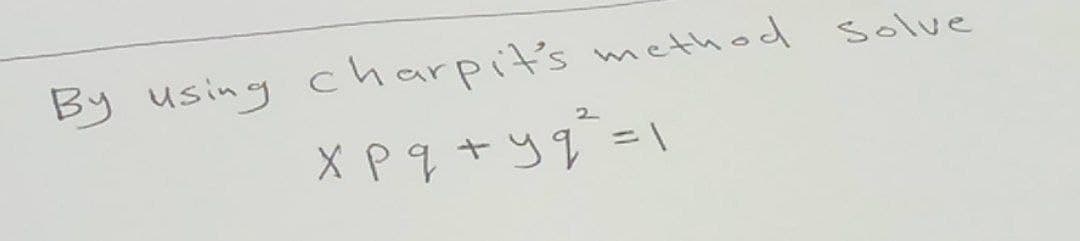 By using charpit's method solve
x p q + y q² = 1